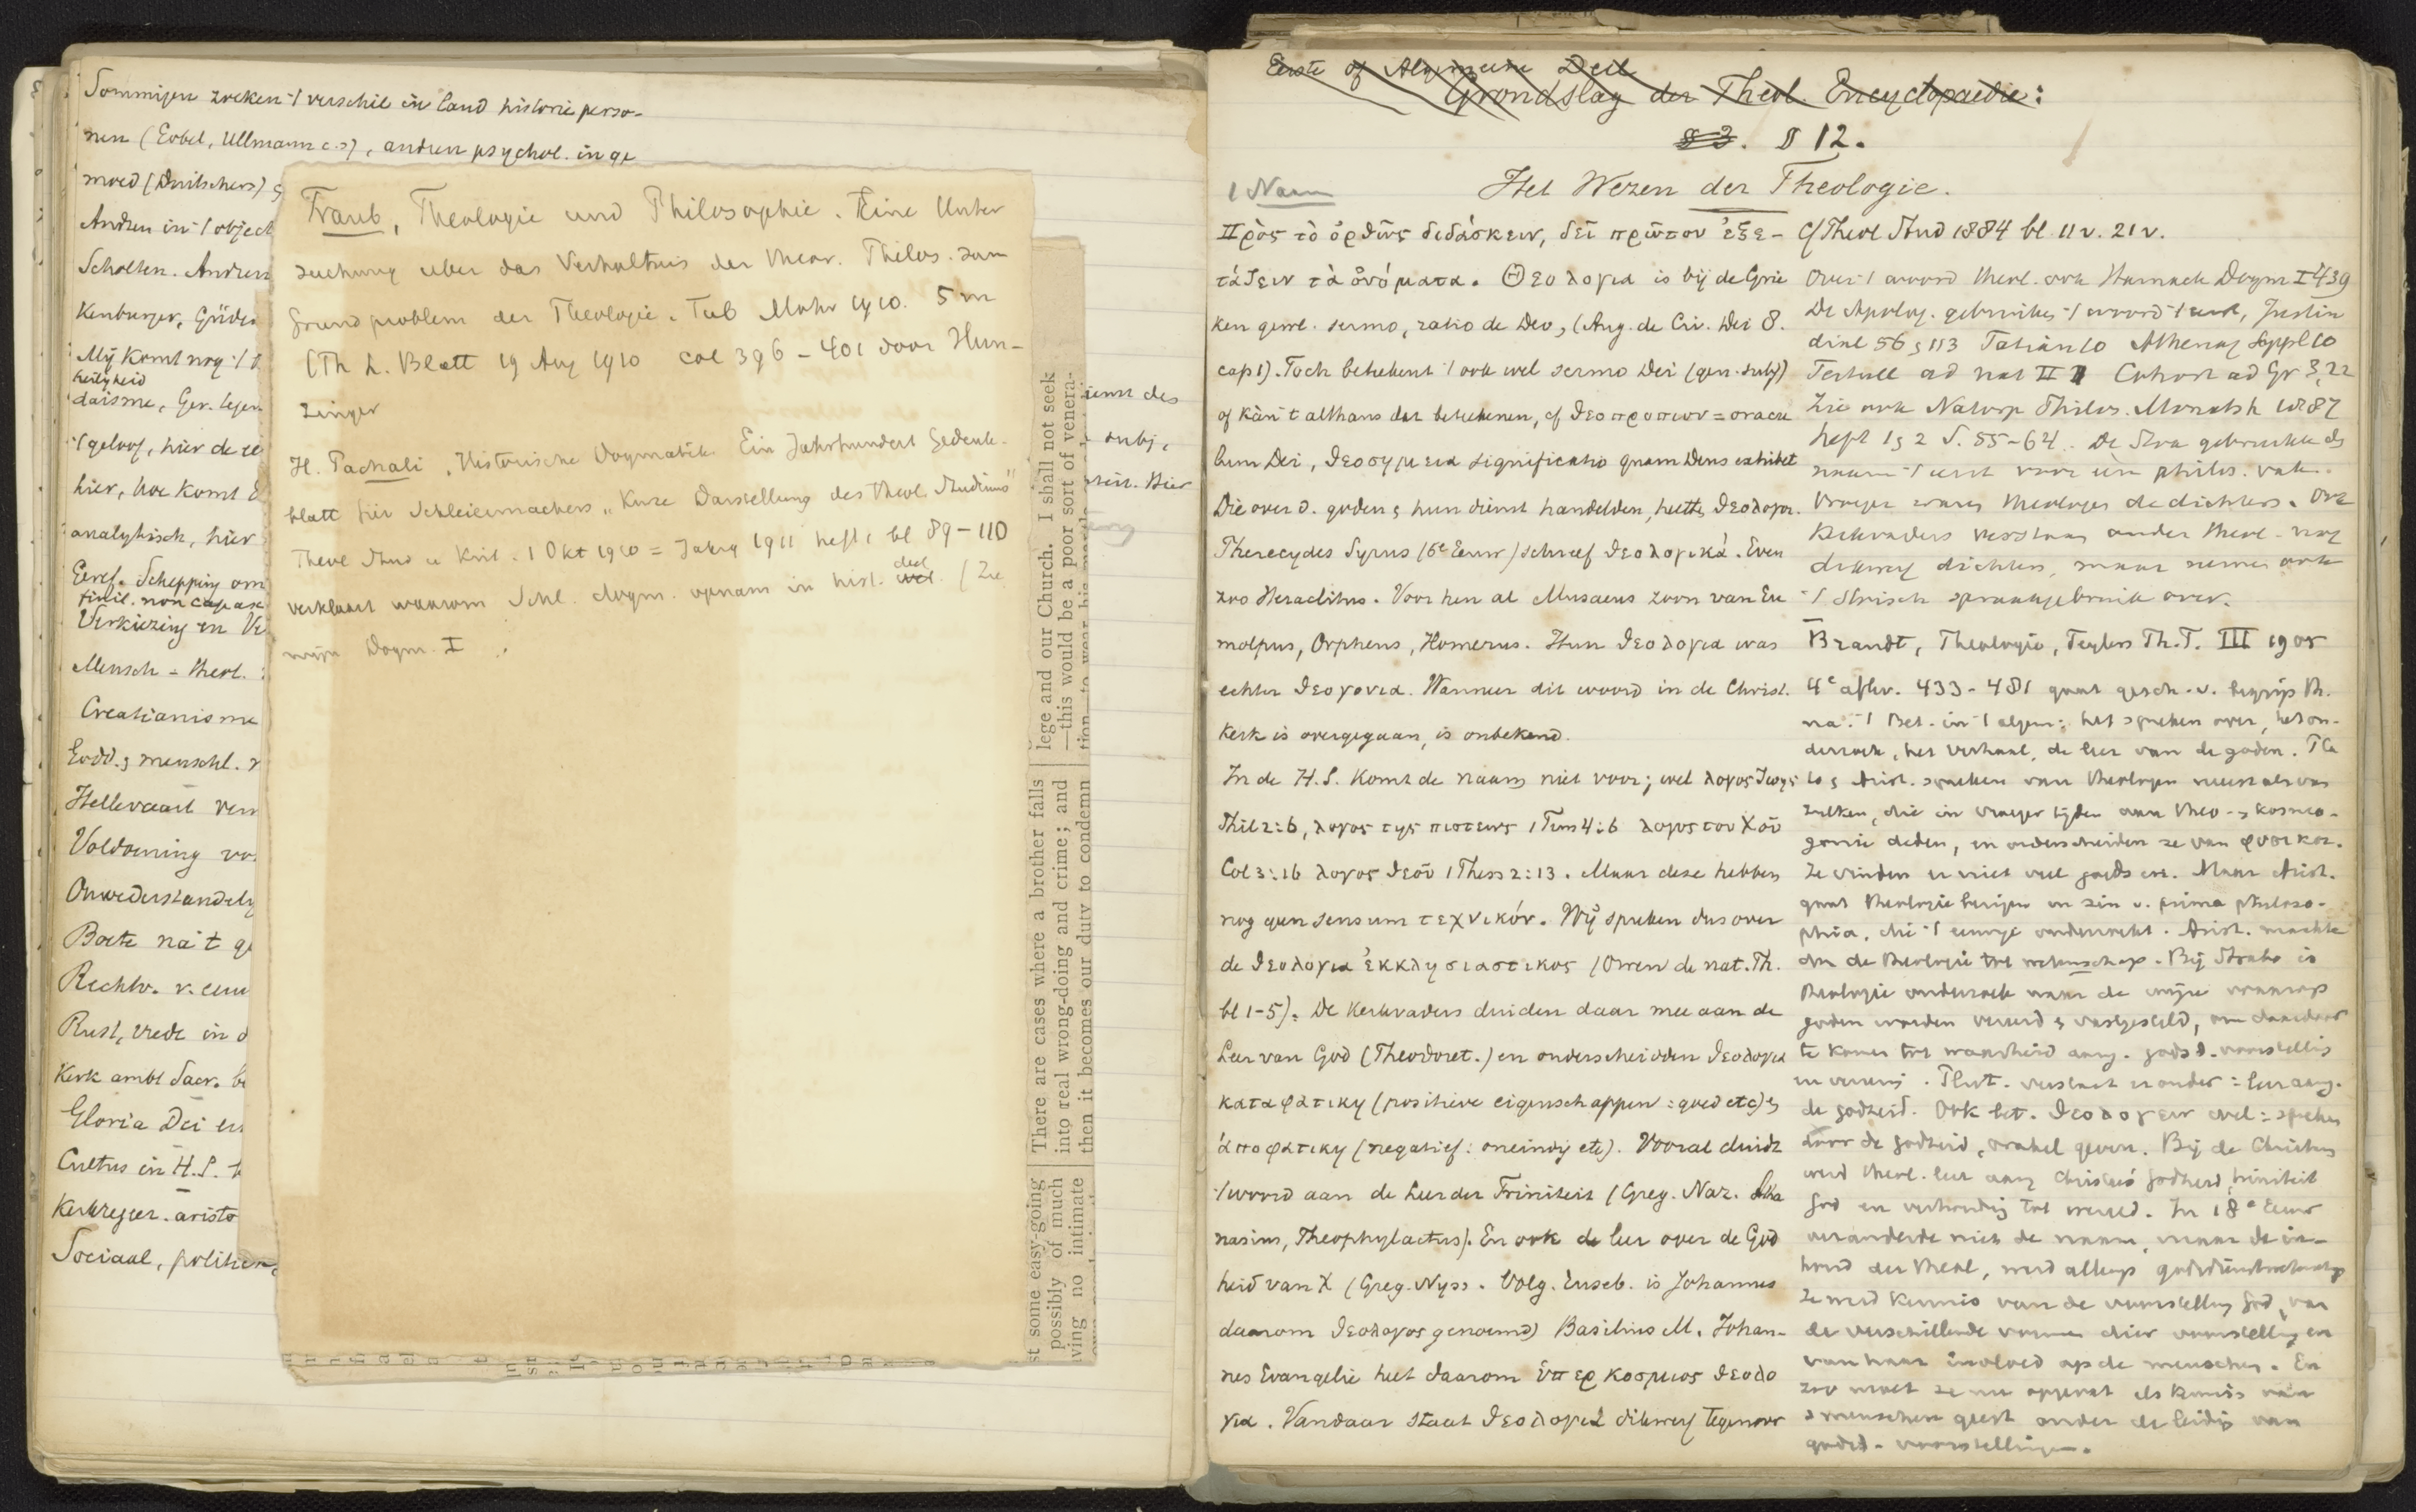 Sommigen zoeken 't verschil in land historie perso-
nen (Gobel, Ullmann c.s), andren psychol. in ge
moed (Duitschers)
Andren in 't object
Scholten. Andren
Kenburger, Güder
Mij komt nog 't
heiligheid
daisme, Ger. tegen
't geloof, hier de re
hier, hoe komt
analytisch, hier
Geref. Schepping om
finit. non capax
Verkiezing en Ve
Mensch = theol.
Creatianisme
Godd. & menschl.
Hellevaart
Voldoening vo
Onwederstandely
Boete na 't ge
Rechtv. v. eeuw
Rust, vrede in d
Kerk ambt Sacr. b
Gloria Dei
Cultus in H.S.
Kerkreger. aristo
Sociaal, politiek
Traub, Theologie und Philosophie. Eine Unter
suchung uber das Verhaltnis der theor. Philos. zum
Grundproblem der Theologie. Tub Mohr 1910. 5 m
(Th L. Blatt 19 Aug 1910 col 396-401 door Hun-
zinger
H. Pachali, "Historische Dogmatik. Ein Jahrhundert Gedenk-
blatt für Schleiermachers „Kurze Darstellung des theol. Studiums"
Theol Stud u Krit. 1 Okt 1910 = Jahrg 1911 heft 1 bl 89-110
deel
verklaart waarom Schl. dogm. opnam in hist. (Zie
mijn Dogm. I
ienst des
subj.
Hier
lege and our Church. I shall not seek
—this would be a poor sort of venera-
There are cases where a brother falls
into real wrong-doing and crime; and
then it becomes our duty to condemn
st some easy-going
possibly of much
ving no intimate
Eerste of Algemeene Deel
Grondslag der Theol. Encyclopaedie:
§ 3. § 12.
Het Wezen der Theologie.
1 Naam
Πρὸς τὸ ὀρθῶς διδάσκειν, δεῖ πρῶτον ἐξε-
τάζειν τὰ ὀνόματα. Θεολογια is bij de Grie
ken gewl. sermo, ratio de Deo, (Aug. de Civ. Dei 8.
cap 1). Toch beteekent 't ook wel sermo Dei (gen. subj)
of kàn 't althans dat beteekenen, cf θεοπροπιον = oracu
lum Dei, θεοσημεια significatio quam Deus exhibet
Die over d. goden & hun dienst handelden, heetten θεολογοι.
Pherecydes Syrus (6e Eeuw) schreef θεολογικά. Even
zoo Heraclitus. Voor hen al Musaeus zoon van Eu
molpus, Orpheus, Homerus. Hun θεολογια was
echter θεογονια. Wanneer dit woord in de Christ.
Kerk is overgegaan, is onbekend.
In de H.S. komt de naam niet voor; wel λογος ζωης
Phil 2:6, λογος της πιστεως 1 Tim 4:6 λογος του Χοῦ
Col 3:16 λογος θεοῦ 1 Thess 2:13. Maar deze hebben
nog geen sensum τεχνικόν. Wij spreken dus over
de θεολογια ἐκκλησιαστικος (Owen de nat. Th.
bl 1-5). De Kerkvaders duiden daar mee aan de
Leer van God (Theodoret.) en onderscheidden θεολογια
καταφατικη (positieve eigenschappen: goed etc) &
ἀποφατικη (negatief: oneindig etc). Vooral duidt
't woord aan de Leer der Triniteit (Greg. Naz. Atha
nasius, Theophylactus). En ook de leer over de God
heid van X (Greg. Nyss. Volg. Euseb. is Johannes
daarom θεολογος genoemd) Basilius M. Johan-
nes Evangelie heet daarom ὑπερκοσμιος θεολο
για. Vandaar staat θεολογια dikwerf tegenover
Cf Theol Stud 1884 bl. 11 v. 21 v.
Over 't woord theol. ook Harnack Dogm I 439
De Apolog. gebruiken 't woord 't eerst, Justin
dial 56 & 113 Tatian 10 Athenag Suppl 10
Tertull ad nat II 1 Cohort ad Gr 3, 22
Zie ook Natorp Philos. Monatsh 1887
heft 1 & 2 S. 55-64. De Stoa gebruikte de
naam 't eerst voor een philos. vak.
Vroeger waren theologen de dichters. Ook
Kerkvaders verstaan onder theol. nog
dikwerf dichters, maar nemen ook
't Stoisch spraakgebruik over.
Brandt, Theologie, Teylers Th.T. III 1905
4e aflev. 433-481 gaat gesch. v. begrip th.
na. 't Bet. in 't algem: het spreken over, het on-
derzoek, het verhaal, de leer van de goden. Pla
to & Arist. spraken van theologen meest als van
zulken, die in vroeger tijden aan theo- & kosmo-
gonie deden, en onderscheiden ze van φυσικοι.
Ze vinden er niet veel goeds in. Maar Arist.
gaat theologie bezigen in zin v. prima philoso-
phia, die 't eeuwige onderzoekt. Arist. maakte
dus de theologie tot wetenschap. Bij Strabo is
theologie onderzoek naar de wijze waarop
goden worden vereerd & vastgesteld, om daardoor
te komen tot waarheid aang. godsd. voorstellin
en vereering. Plut. verstaat er onder: leer aang.
de godheid. Ook bet. θεολογειν wel: spreken
door de godheid, orakel geven. Bij de Christen
werd theol. leer aang Christus' godheid, triniteit
God en verhouding tot wereld. In 18e Eeuw
veranderde niet de naam, maar de in-
houd der theol, werd allengs godsdienstwetenschap
Ze werd kennis van de voorstelling God, van
de verschillende vormen dier voorstelling en
van haar invloed op de menschen. En
zoo moet ze nu opgevat als kennis van
's menschen geest onder de leiding van
godsd. voorstellingen.